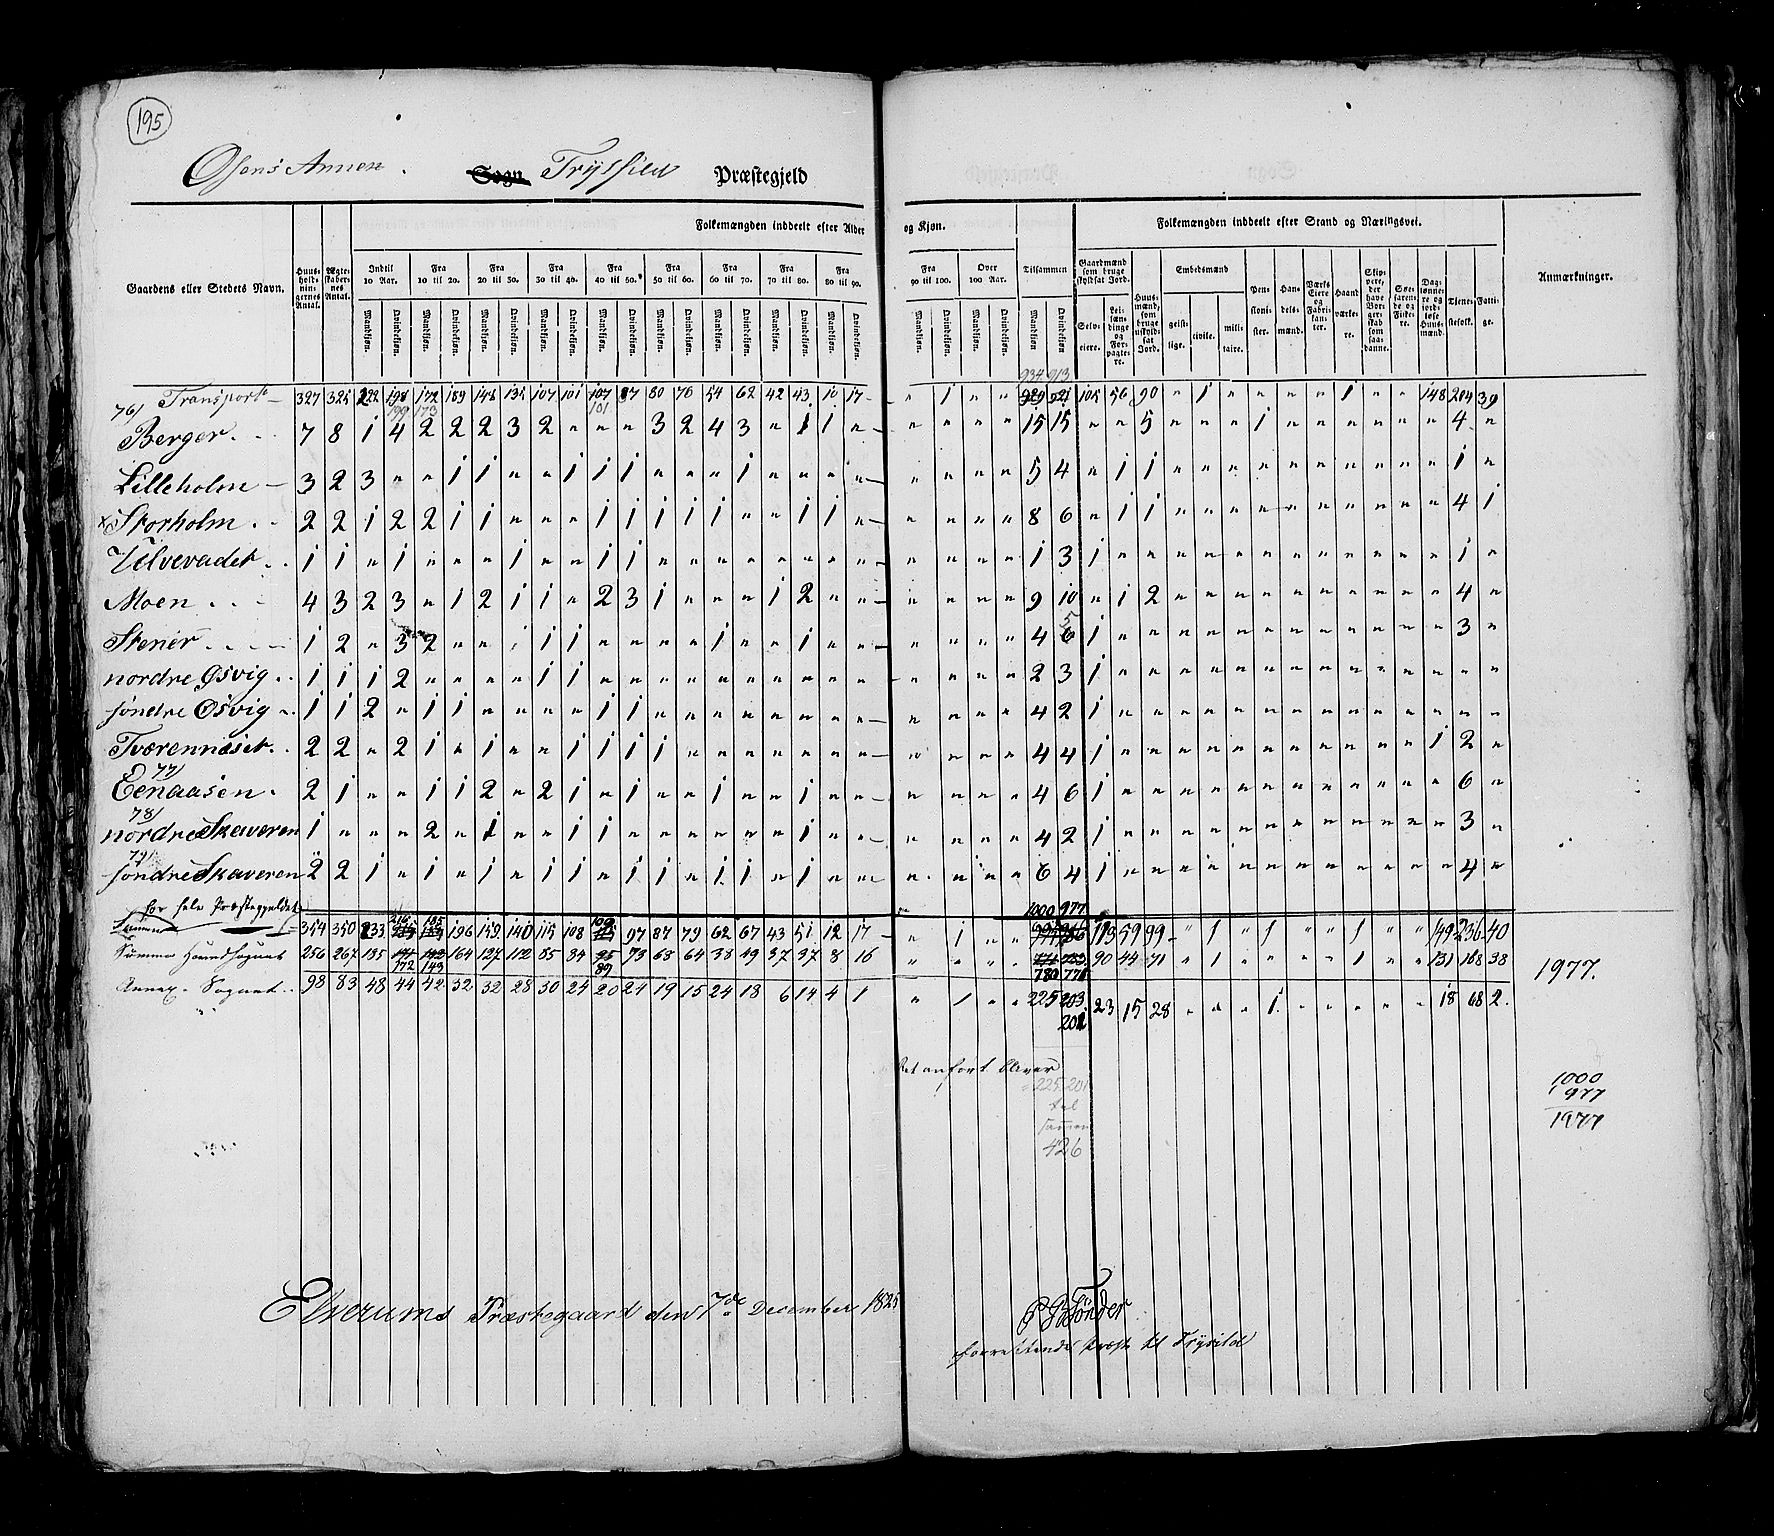 195
Osens Annex. Sogn Trysild Præstegjeld
Gaardens eller Stedets Navn.
Huusholdningernes Antal.
Ægteskabernes Antal.
Folkemængden inddeelt efter Alder og Kjøn.
Indtil 10 Aar.
Fra 10 til 20.
Fra 20 til 30.
Fra 30 til 40.
Fra 40 til 50.
Fra 50 til 60.
Fra 60 til 70.
Fra 70 til 80.
Fra 80 til 90.
Fra 90 til 100.
Over 100 Aar.
Tilsammen
Mandkjøn. Qvindekjøn.
Folkemængden inddeelt efter Stand og Næringsvei.
Gaardmænd som bruge skyldsat Jord.
Selveiere.
Leilændinge og Forpagtere.
Huusmænd, som bruge uskyldsat Jord.
Embedsmænd
geistlige. civile. militaire.
Pensionister.
Handelsmænd.
Værks Eiere og Fabrikanter.
Haandværkere.
Skippere, der have Borgerskab som saadanne.
Søefarende og Fiskere.
Daglønnere og jordløse Huusmænd.
Tjenestefolk.
Fattige.
Anmærkninger.
934 913
Transport 327 325 222 198 172 189 148 135 107 101 107 87 80 76 54 62 42 43 10 17 " 1 " " 105 56 90 " 1 " " " " 1 " " 148 204 39
199 173 101
76) Berger 7 8 1 4 2 2 2 3 2 " " " 3 2 4 3 " 1 1 " " " " " 15 15 " " 5 " " " 1 " " " " " " 4 "
Lilleholm 3 2 3 " " 1 1 " " 1 1 1 " " " 1 " " " " " " " " 5 4 " 1 1 " " " " " " " " " " 1 "
x Storholm 2 2 1 2 2 1 1 " " " 1 1 1 1 1 " " 1 1 " " " " " 8 6 " 1 1 " " " " " " " " " " 4 1
Ulvevadet 1 1 " 1 " " " 1 " " 1 1 " " " " " " " " " " " " 1 3 1 " " " " " " " " " " " " 1 "
Moen 4 3 2 3 " 1 2 1 1 " 2 3 1 " " " 1 2 " " " " " " 9 10 " 1 2 " " " " " " " " " " 4 "
5
Stener 1 2 " 3 2 " " 1 1 1 " " " " 1 " " 1 " " " " " " 4 6 1 " " " " " " " " " " " " 3 "
nordre Øsvig 1 1 1 2 " " " " 1 1 " " " " " " " " " " " " " " 2 3 1 " " " " " " " " " " " " " "
søndre Øsvig 1 1 2 " 1 1 " " " " 1 1 " " " " " " " " " " " " 4 2 1 " " " " " " " " " " " " " "
Tværennæset 2 2 " 2 1 " 1 " " 1 1 1 1 " " " " " " " " " " " 4 4 1 " " " " " " " " " " " 1 2 "
77)
Eenaasen 2 1 " " 1 1 2 " 2 1 " 1 " " 1 " " 1 " " " " " " 4 6 1 " " " " " " " " " " " " 6 "
78)
nordre Skaveren 1 " " " 2 " 1 " " 1 1 " " " " " " 1 " " " " " " 4 2 1 " " " " " " " " " " " " 3 "
søndre Skaveren 2 2 1 " 1 " 1 " 1 1 " 1 1 " 1 1 " 1 " " " " " " 6 4 1 " " " " " " " " " " " " 4 "
for hele Præstegjeldet
1000 977
Summa 354 350 233 216 185 196 159 140 115 108 109 97 87 79 62 67 43 51 12 17 " 1 " " 113 59 99 " 1 " 1 " " 1 " " 149 236 40
Summa Hovedsognet 256 267 185 164 127 112 85 84 73 68 64 38 49 37 37 8 16 " " " " 90 44 71 " 1 " " " " 1 " " 131 168 38
172 143 89 780 776
Annex-Sognet 98 83 48 44 42 32 32 28 30 24 20 24 19 15 24 18 6 14 4 1 " 1 " " 225 203 23 15 28 " " " 1 " " " " " 18 68 2
201
1977.
225 201
til
sammen
426
1000
977
1977
Elverums Præstegaard den 7de December 1825
Tønder
Præst til Trysild